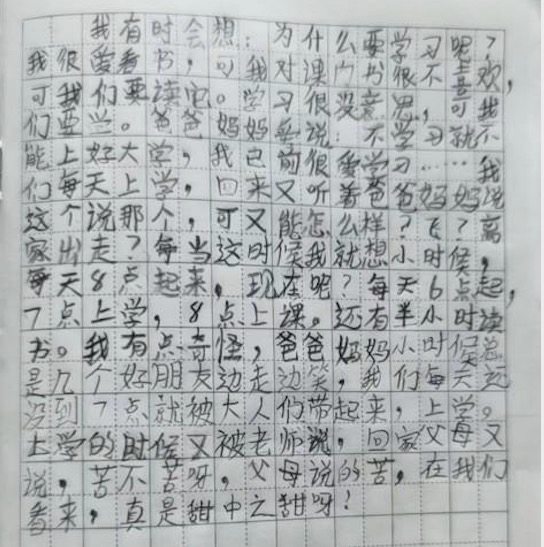 我有时会想：为什么要学习呢？
我很爱看书，可我对课门书很不喜欢，
可我们要读吧。学习很没意思，可我
们要学。爸爸妈妈每说：不学习就不
能上好大学，我已前很爱学习……我
们每天上学，回来又听着爸爸妈妈说
这个说那个，可又能怎么样？飞？离
家出走？每当这时候我就想小时候，
每天8点起来，现在呢？每天6点起，
7点上学，8点上课。还有半小时读
书。我有点奇怪，爸爸妈妈小时候总
是几个好朋友边走边笑，我们每天还
没到7点就被大人们带起来，上学。
上学的时候又被老师说，回家父母又
说，苦不苦呀，父母说的苦，在我们
看来，真是甜中之甜呀！